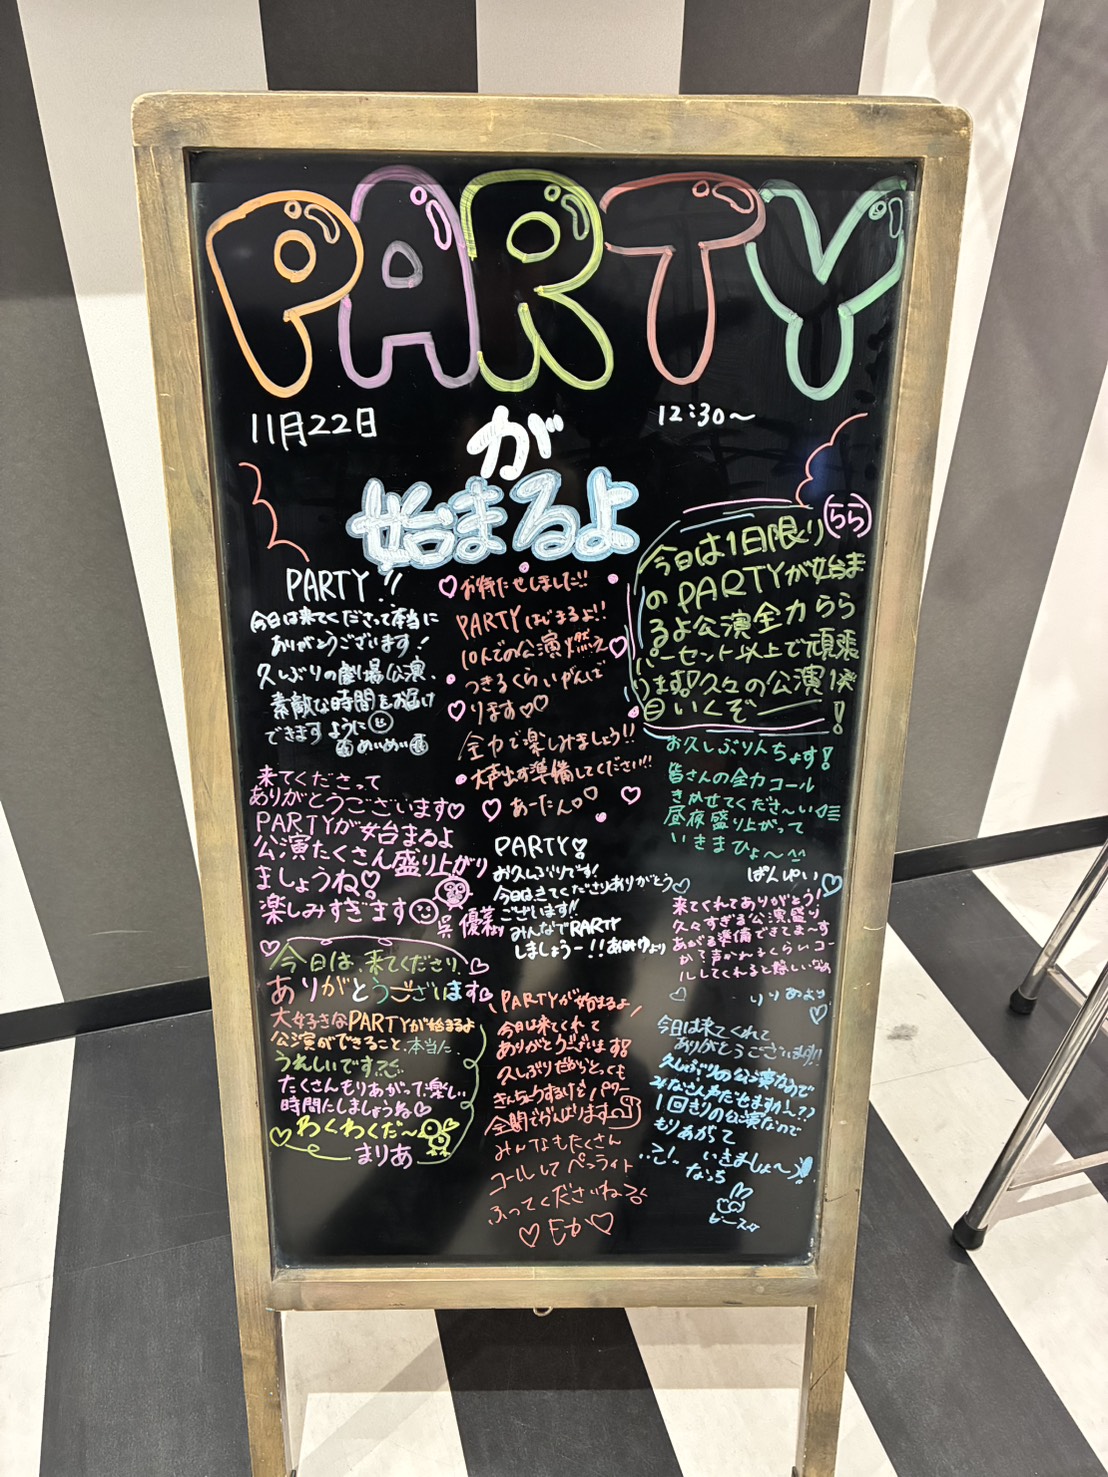 PARTY
11月22日
12:30〜
が
始まるよ
PARTY!!
今日は来てくださって本当に
ありがとうございます!
久しぶりの劇場公演、
素敵な時間をお届け
できますように
めいめい
お待たせしました!!
PARTYはじまるよ!!
10人での公演燃え
つきるくらいやんで
ります♡♡
全力で楽しみましょう!!
大声出す準備してください!!
あーたん♡
らら
今日は1日限り
のPARTYが始ま
るよ公演全力らら
パーセント以上で頑張
ります!久々の公演1発
目いくぞー!
お久しぶりんちょす!
皆さんの全力コール
きかせてくださ〜い
昼夜盛り上がって
いきまひょ〜^^
ぱんゆい
来てくださって
ありがとうございます♡
PARTYが始まるよ
公演たくさん盛り上がり
ましょうね♡
楽しみすぎます
呉 優菜
PARTY♡
お久しぶりです!
今日はきてくださりありがとう
ございます!!
みんなでPARTY
しましょうー!!
来てくれてありがとう!
久々すぎる公演盛り
あがる準備できてま〜す
か?声かれるくらいコー
ルしてくれると嬉しいなぁ
りりあより
今日は、来てくださり、
ありがとうございます
大好きなPARTYが始まるよ
公演ができること、本当に、
うれしいです
たくさんもりあがって楽しい
時間にしましょうね♡
わくわくだ〜
まりあ
PARTYが始まるよ
今日は来てくれて
ありがとうございます!
久しぶりだからとっても
きんちょうするけどパワー
全開でがんばります
みんなもたくさん
コールしてペンライト
ふってくださいね
♡Eか♡
今日は来てくれて
ありがとうございます!!
久しぶりの公演なので
みなさん声だせますか〜??
1回きりの公演なので
もりあがって
いきましょ〜
なっち
ピース☆